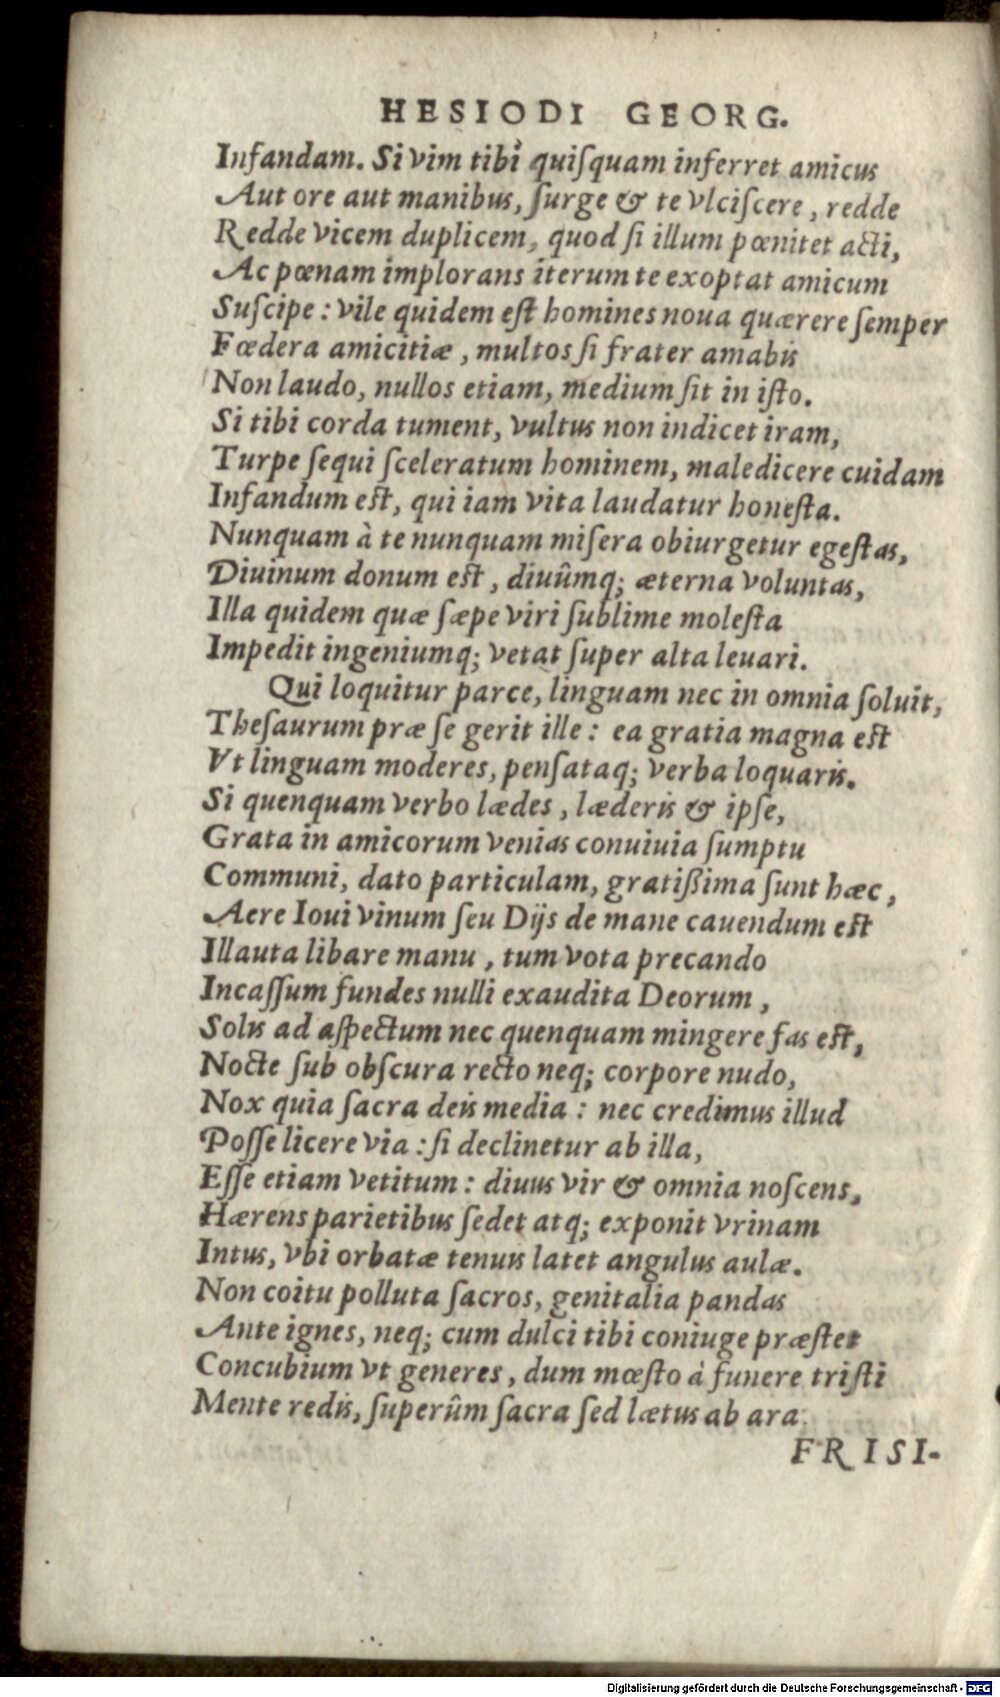 HESIODI GEORG.
Infandam. Si vim tibi quiſquam inferret amicus
Aut ore aut manibus, ſurge & te vlciſcere, redde
Redde vicem duplicem, quod ſi illum pœnitet acti,
Ac pœnam implorans iterum te exoptat amicum
Suſcipe: vile quidem eſt homines noua quærere ſemper
Fœdera amicitiæ, multos ſi frater amabis
Non laudo, nullos etiam, medium ſit in iſto.
Si tibi corda tument, vultus non indicet iram,
Turpe ſequi ſceleratum hominem, maledicere cuidam
Infandum eſt, qui iam vita laudatur honeſta.
Nunquam à te nunquam miſera obiurgetur egeſtas,
Diuinum donum eſt, diuûmq; æterna voluntas,
Illa quidem quæ ſæpe viri ſublime moleſta
Impedit ingeniumq; vetat ſuper alta leuari.
Qui loquitur parce, linguam nec in omnia ſoluit,
Theſaurum præ ſe gerit ille: ea gratia magna eſt
Vt linguam moderes, penſataq; verba loquaris.
Si quenquam verbo lædes, læderis & ipſe,
Grata in amicorum venias conuiuia ſumptu
Communi, dato particulam, gratißima ſunt hæc,
Aere Ioui vinum ſeu Dijs de mane cauendum eſt
Illauta libare manu, tum vota precando
Incaſſum fundes nulli exaudita Deorum,
Solis ad aſpectum nec quenquam mingere fas eſt,
Nocte ſub obſcura recto neq; corpore nudo,
Nox quia ſacra deis media: nec credimus illud
Poſſe licere via: ſi declinetur ab illa,
Eſſe etiam vetitum: diuus vir & omnia noſcens,
Hærens parietibus ſedet atq; exponit vrinam
Intus, vbi orbatæ tenuis latet angulus aulæ.
Non coitu polluta ſacros, genitalia pandas
Ante ignes, neq; cum dulci tibi coniuge præſtet
Concubium vt generes, dum mœſto à funere triſti
Mente redis, ſuperûm ſacra ſed lætus ab ara.
FRISI-
Digitalisierung gefördert durch die Deutsche Forschungsgemeinschaft - DFG